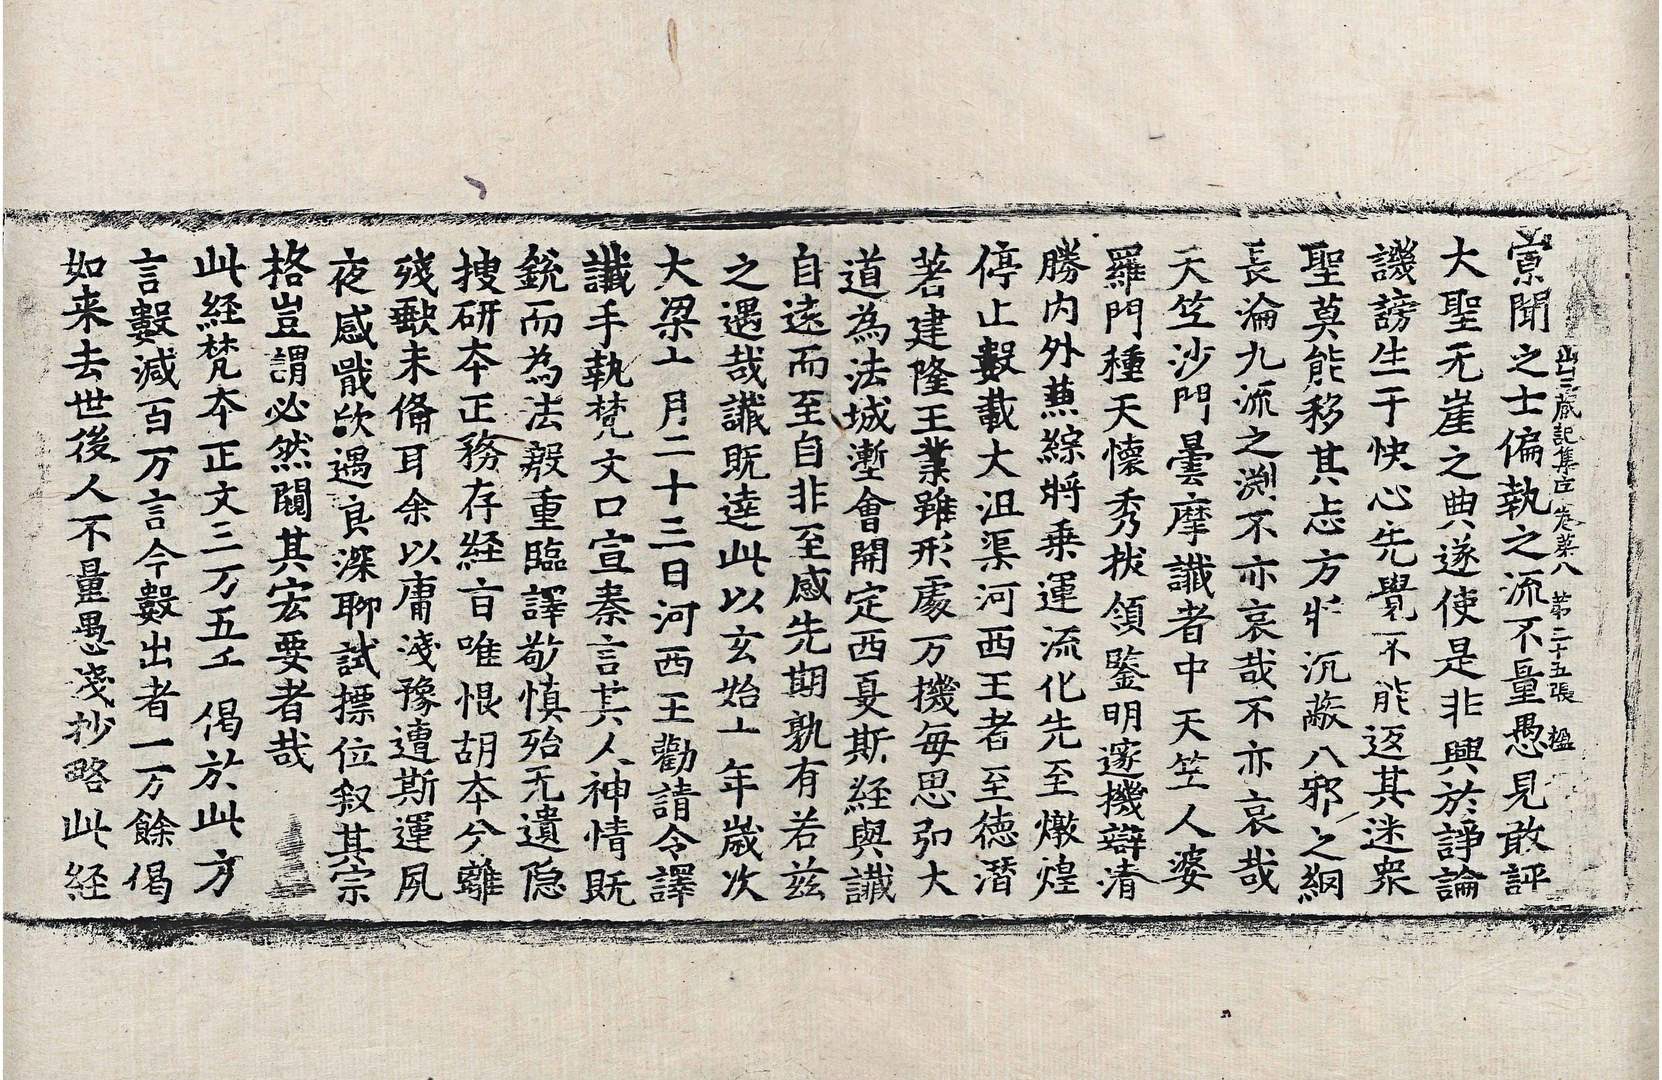 出三藏記集序卷苐八 苐二十五張 楹
甞聞之士偏執之流不量愚見敢評
大聖无崖之典遂使是非興於諍論
譏謗生于快心先覺不能返其迷衆
聖莫能移其志方將沉蔽八邪之網
長淪九流之渊不亦哀哉不亦哀哉
天竺沙門曇摩讖者中天笁人婆
羅門種天懷秀拔領鑒明邃機辯清
勝内外兼綜將乗運流化先至燉煌
停止數載大沮渠河西王者至德潜
著建隆王業雖形處万機每思弘大
道為法城塹會開定西夏斯経與讖
自遠而至自非至感先期孰有若兹
之遇哉讖既達此以玄始 年歲次
大梁 月二十三日河西王勸請令譯
讖手執梵文口宣秦言其人神情既
銳而為法殷重臨譯敬慎殆无遺隐
捜研夲正務存経言唯恨胡夲分離
殘缺未俻耳余以庸淺豫遭斯運夙
夜感戢欣遇良深聊試標位叙其宗
格豈謂必然闚其宏要者哉
此経梵夲正文三万五 偈於此方
言數減百万言今數出者一万餘偈
如来去世後人不量愚淺抄略此経